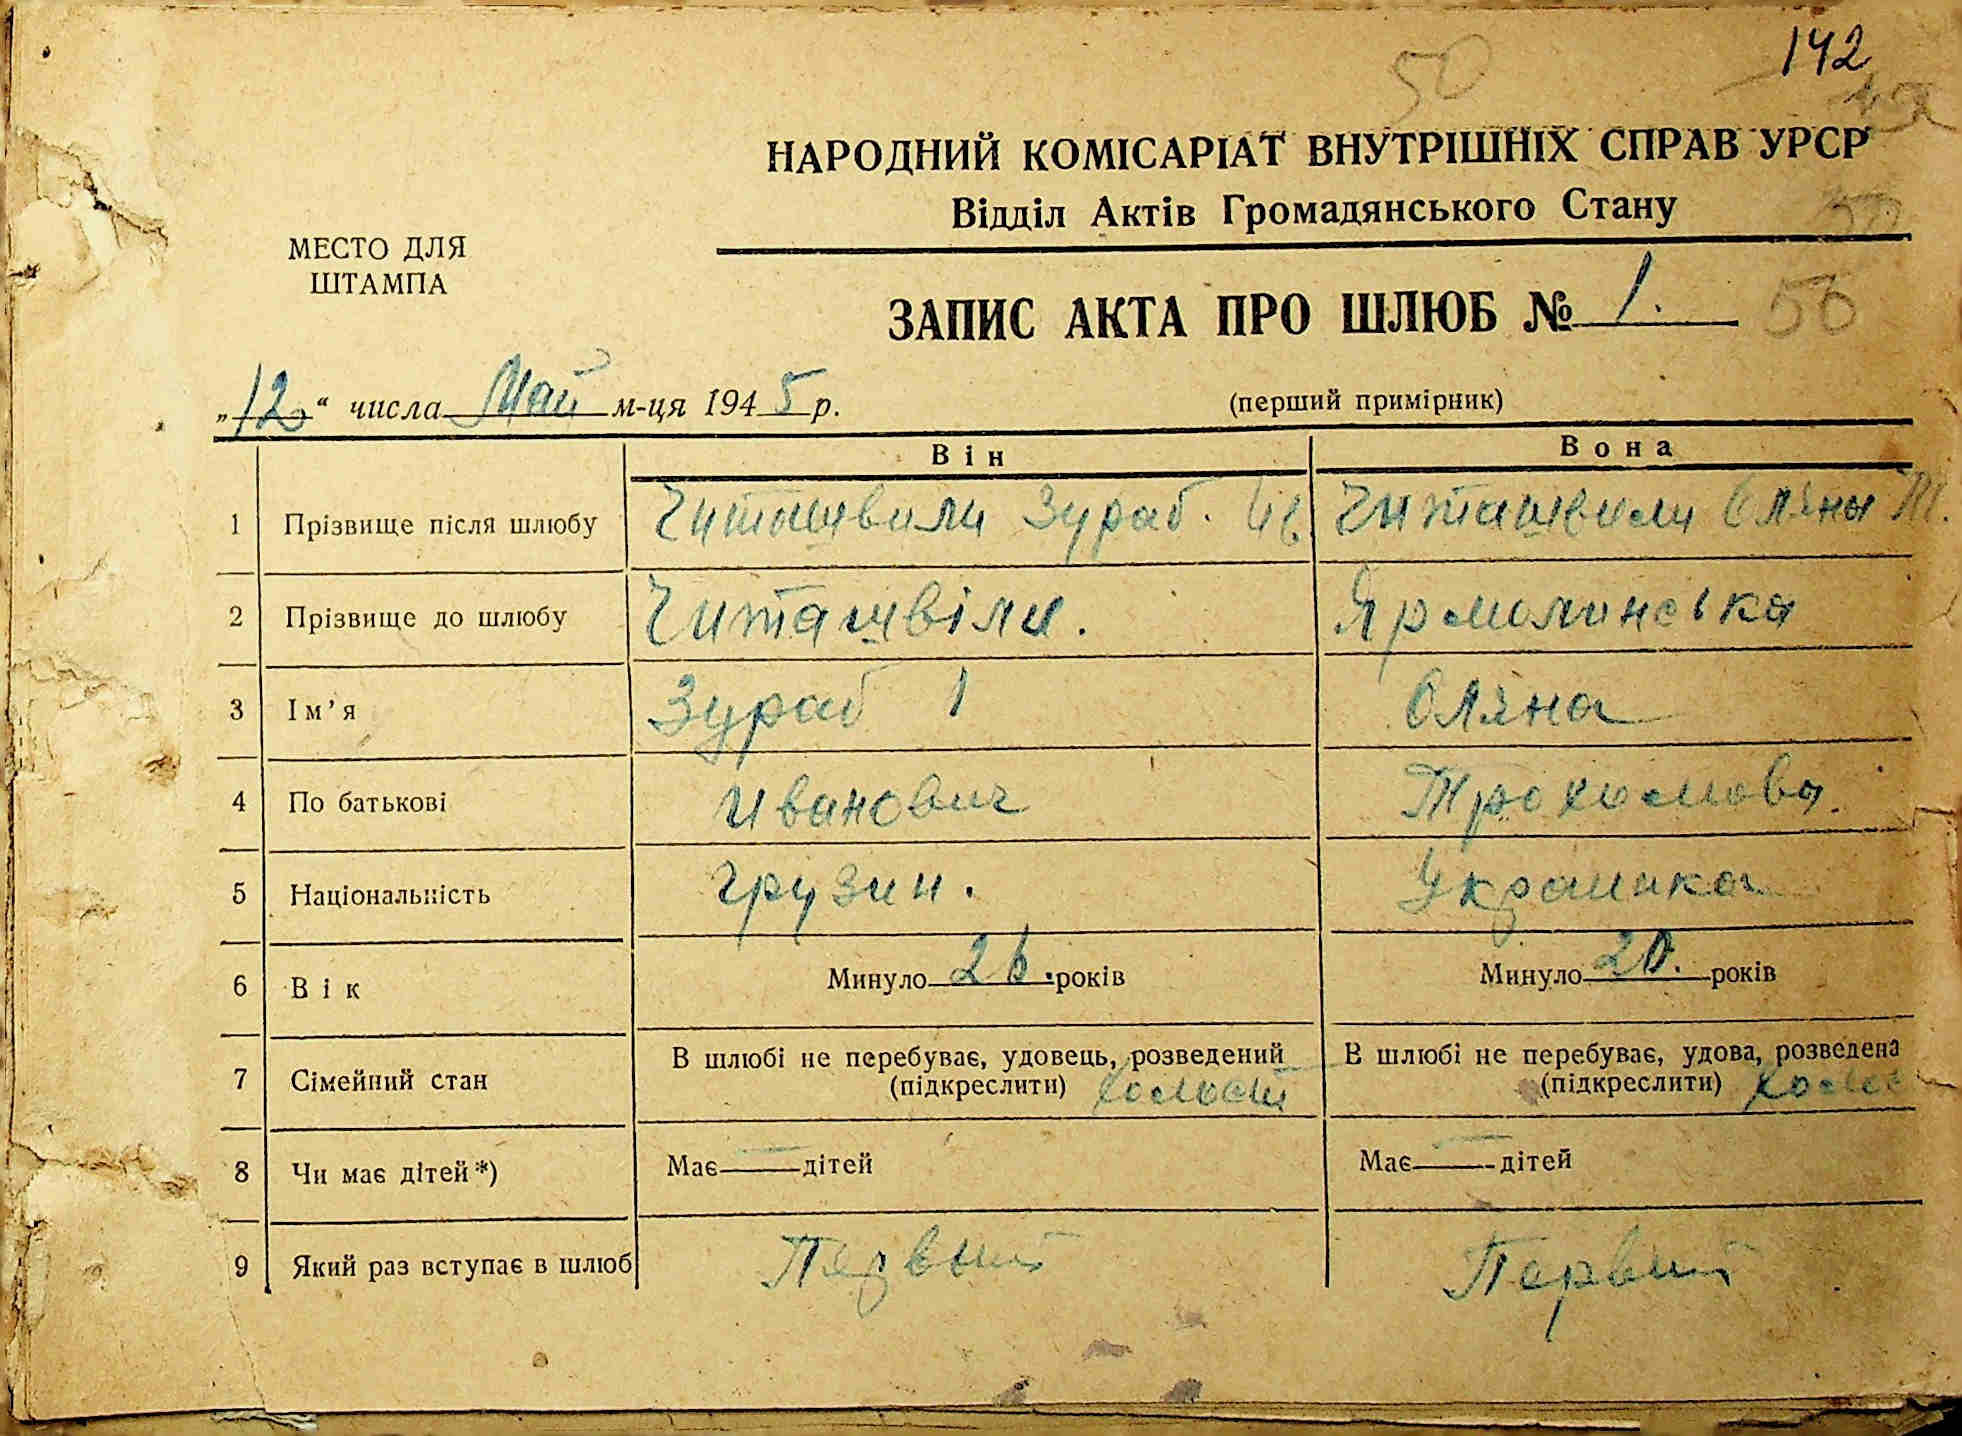 142
50
НАРОДНИЙ КОМІСАРІАТ ВНУТРІШНІХ СПРАВ УРСР
Відділ Актів Громадянського Стану
МЕСТО ДЛЯ
ШТАМПА
ЗАПИС АКТА ПРО ШЛЮБ № 1.
50
„12“ числа Май м-ця 1945 р.
(перший примірник)
Він Вона
1 Прізвище після шлюбу Читашвили Зураб. Ив Читашвили Оляны Т.
2 Прізвище до шлюбу Читашвіли. Ярмолинська
3 Ім’я Зураб 1 Оляна
4 По батькові Иванович Трохимова.
5 Національність грузин. Украинка
6 Вік Минуло 26. років Минуло 20. років
7 Сімейний стан В шлюбі не перебуває, удовець, розведений В шлюбі не перебуває, удова, розведена
(підкреслити) холости (підкреслити)
8 Чи має дітей*) Має — дітей Має — дітей
9 Який раз вступає в шлюб Первый Первий